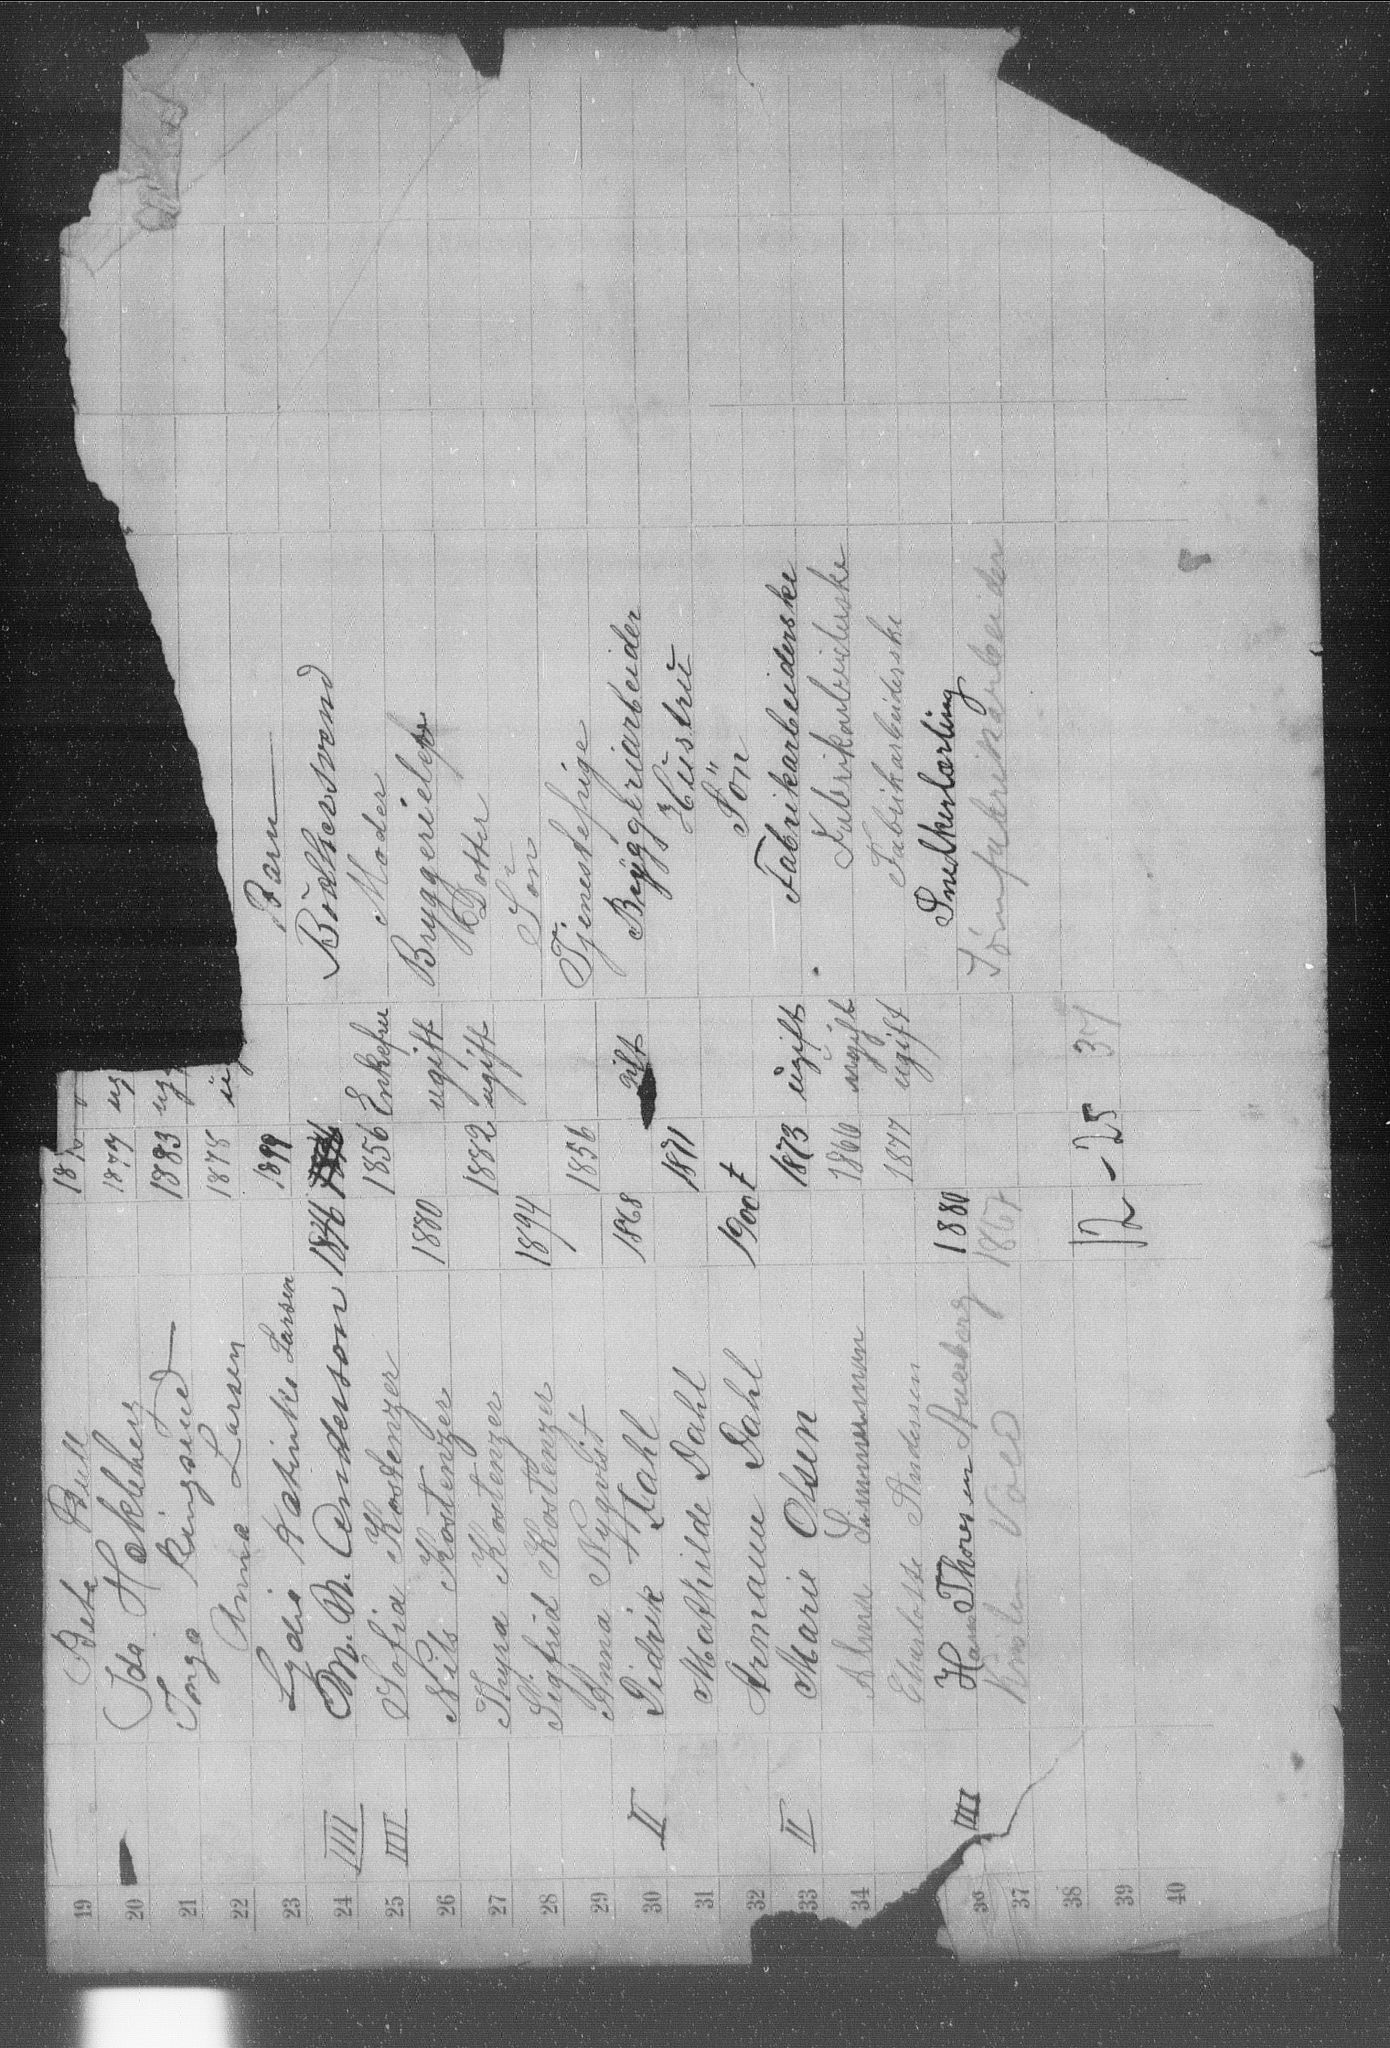 19 Beta Bull 187
20 Ida Hekkberg 1877 ug
21 Inga Ringsrud 1883 ug
22 Anna Larsen 1878 ug
23 Lydia Katinka Larsen 1899 Barn
24 IIII M. M. Anderson 1846 Bödkersvend
25 IIII Sofia Kostenzer 1856 Enkefru Moder
26 Nils Kostenzer 1880 ugift Bryggerielev
27 Thyra Kostenzer 1882 ugift Dotter
28 Sigfrid Kostenzer 1894 Sön
29 Anna Nyqvist 1856 Tjenestepige
30 II Didrik Dahl 1868 gift Bryggeriarbeider
31 Mathilde Dahl 1871 Hustru
32 Armann Dahl 1900 Sön
33 II Marie Olsen 1873 ugift Fabrikarbeiderske
34 Anna 1866 ugift Fabrikarbeiderske
Charlotte Andersen 1877 ugift Fabrikarbeiderske
36 IIII Hans Thoresen 1880 Snedkerlærling
37 Vold 1867
38
39 12-25 37
40